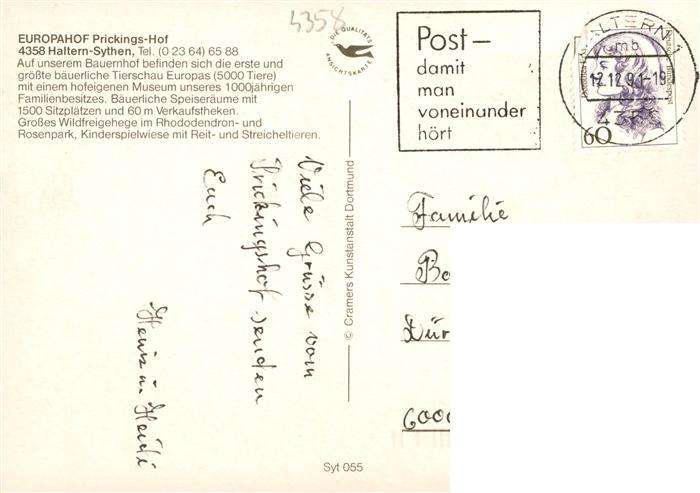 4358
EUROPAHOF Prickings-Hof
4358 Haltern-Sythen, Tel. (0 23 64) 65 88
Auf unserem Bauernhof befinden sich die erste und
größte bäuerliche Tierschau Europas (5000 Tiere)
mit einem hofeigenen Museum unseres 1000jährigen
Familienbesitzes. Bäuerliche Speiseräume mit
1500 Sitzplätzen und 60 m Verkaufstheken.
Großes Wildfreigehege im Rhododendron- und
Rosenpark, Kinderspielwiese mit Reit- und Streicheltieren.
DIE QUALITÄTS
ANSICHTSKARTE
Post-
damit
man
voneinander
hört
HALTERN 1
12.12.91-19
4358
60
Viele Grüsse vom
Prickingshof senden
Euch
Heinz u. Heidi
© Cramers Kunstanstalt Dortmund
Familie
Ba
Dür
6000
Syt 055